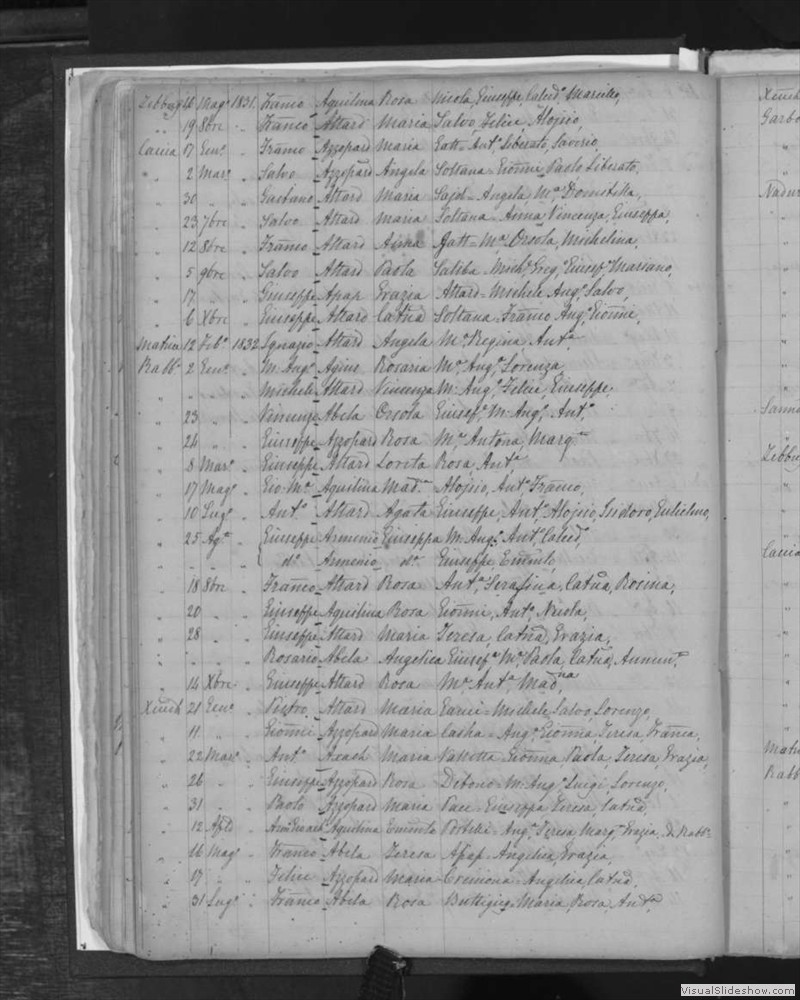 Zebbug 16 Mag.o 1831. Franco Aquilina Rosa Nicola, Giuseppe, Cated.a Marsilio,
" 19 8bre " Franco Attard Maria Salvo, Felice, Aloisio,
Caccia 17 Gen.o " Franco Azzopard Maria Gatt- Ant.o Liberato, Saverio,
" 2 Mar.o " Salvo Azzopard Angela Soltana- Gionni Paolo Liberato,
" 30 " " Gaetano Attard Maria Said- Angela M.a Domitilla,
" 23 7bre " Salvo Attard Maria Soltana- Anna Vincenza, Giuseppa,
" 12 8bre " Franco Attard Anna Gatt- M.a Orsola, Michelina,
" 5 9bre " Salvo Attard Paola Saliba Mich.e Greg.o Giusep.e Mariano,
" 17 " " Giuseppe Apap Grazia Attard- Michele Aug.o Salvo,
" 6 Xbre " Giuseppe Attard Catna Soltana- Franco Aug.o Gionni,
Matrice 12 Feb.o 1832 Ignazio Attard Angela M.a Regina Ant.a
Rabb.o 2 Gen.o " M. Ang.o Agius Rosaria M.a Ang.a Lorenza
" " " " Michele Attard Vincenza M. Aug.o Felice, Giuseppe,
" 23 " " Vincenzo Abela Orsola Giusep.e M. Ang.o Ant.o
" 24 " " Giuseppe Azzopard Rosa M.a Antona, Marg.a
" 8 Mar.o " Giuseppe Attard Loreta Rosa, Ant.a
" 17 Mag.o " Gio. M.a Aquilina Mad.na Aloisio, Ant.o Franco,
" 10 Lug.o " Ant.o Attard Agata Giuseppe, Ant.o Aloisio, Isidoro, Gulielmo,
" 25 Ag.to " Giuseppe Armenio Giuseppa M. Ang.a Ant.a Cated.a
" " " " d.o Armenio d.a Giuseppe
" 18 8bre " Franco Attard Rosa Ant.a Serafina, Catna, Rosina,
" 20 " " Giuseppe Aquilina Rosa Gionni, Ant.o Nicola,
" 28 " " Giuseppe Attard Maria Teresa, Catna, Grazia,
" " " " Rosario Abela Angelica Giusep.a M.a Paola, Catna, Annun.a
" 14 Xbre " Giuseppe Attard Rosa M.a Ant.a Mad.na
Xeuch 21 Gen.o " Pietro Attard Maria Michele, Salvo, Lorenzo,
" 11 " " Gionni Azzopard Maria Casha- Ang.a Gionna, Teresa, Franca,
" 22 Mar.o " Ant.o Maria Vassotta Gionna, Paola, Teresa, Grazia,
" 26 " " Giuseppe Azzopard Rosa Debono- M. Ang.o Luigi, Lorenzo,
" 31 " " Paolo Azzopard Maria Pace- Giuseppa Teresa, Catna,
" 12 Aquilina Portelli- Ang.a Teresa Marg.a Grazia, di Rabb.o
" 16 Mag.o " Franco Abela Teresa Apap- Angelica, Grazia,
" 17 " " Felice Azzopard Maria Cremona- Angelica, Catna,
" 31 Lug.o " Franco Abela Rosa Buttigieg- Maria, Rosa, Ant.a
Xeuch
Garbo
Nadur
Sann
Zebbug
Caccia
Matr
Rabb
VisualSlideshow.com